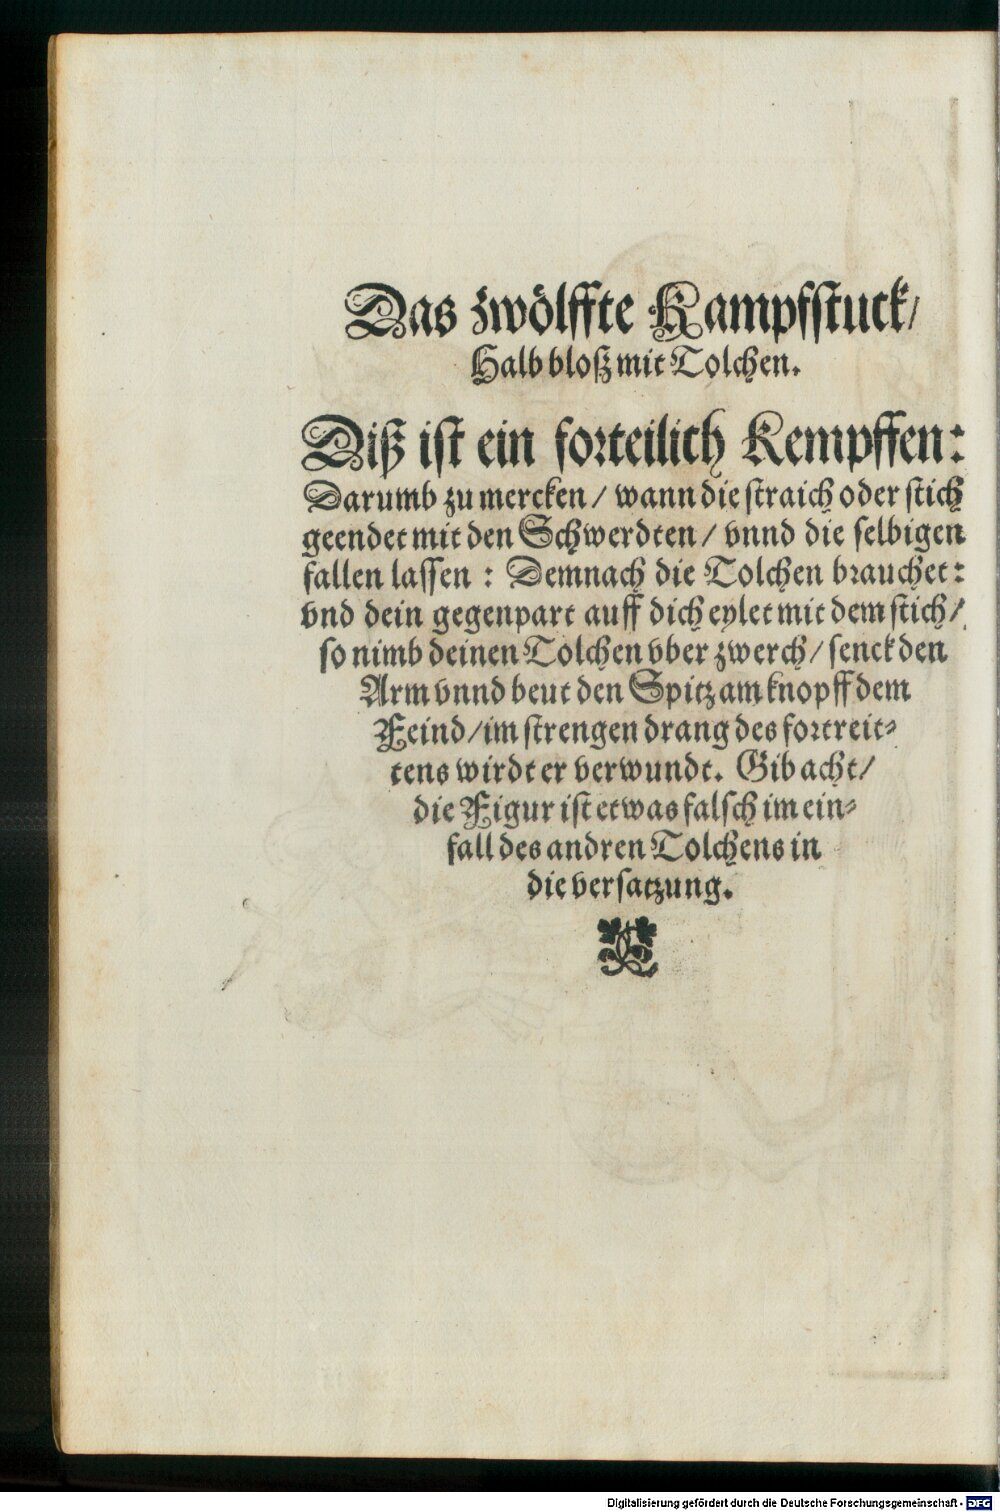 Das zwölffte Kampfstuck/
Halb bloß mit Tolchen.
Diß ist ein forteilich Kempffen:
Darumb zu mercken / wann die straich oder stich
geendet mit den Schwerdten / vnnd die selbigen
fallen lassen : Demnach die Tolchen brauchet:
vnd dein gegenpart auff dich eylet mit dem stich/
so nimb deinen Tolchen vber zwerch / senck den
Arm vnnd beut den Spitz am knopff dem
Feind / im strengen drang des fortreit-
tens wirdt er verwundt. Gib acht/
die Figur ist etwas falsch im ein-
fall des andren Tolchens in
die versatzung.
Digitalisierung gefördert durch die Deutsche Forschungsgemeinschaft - DFG